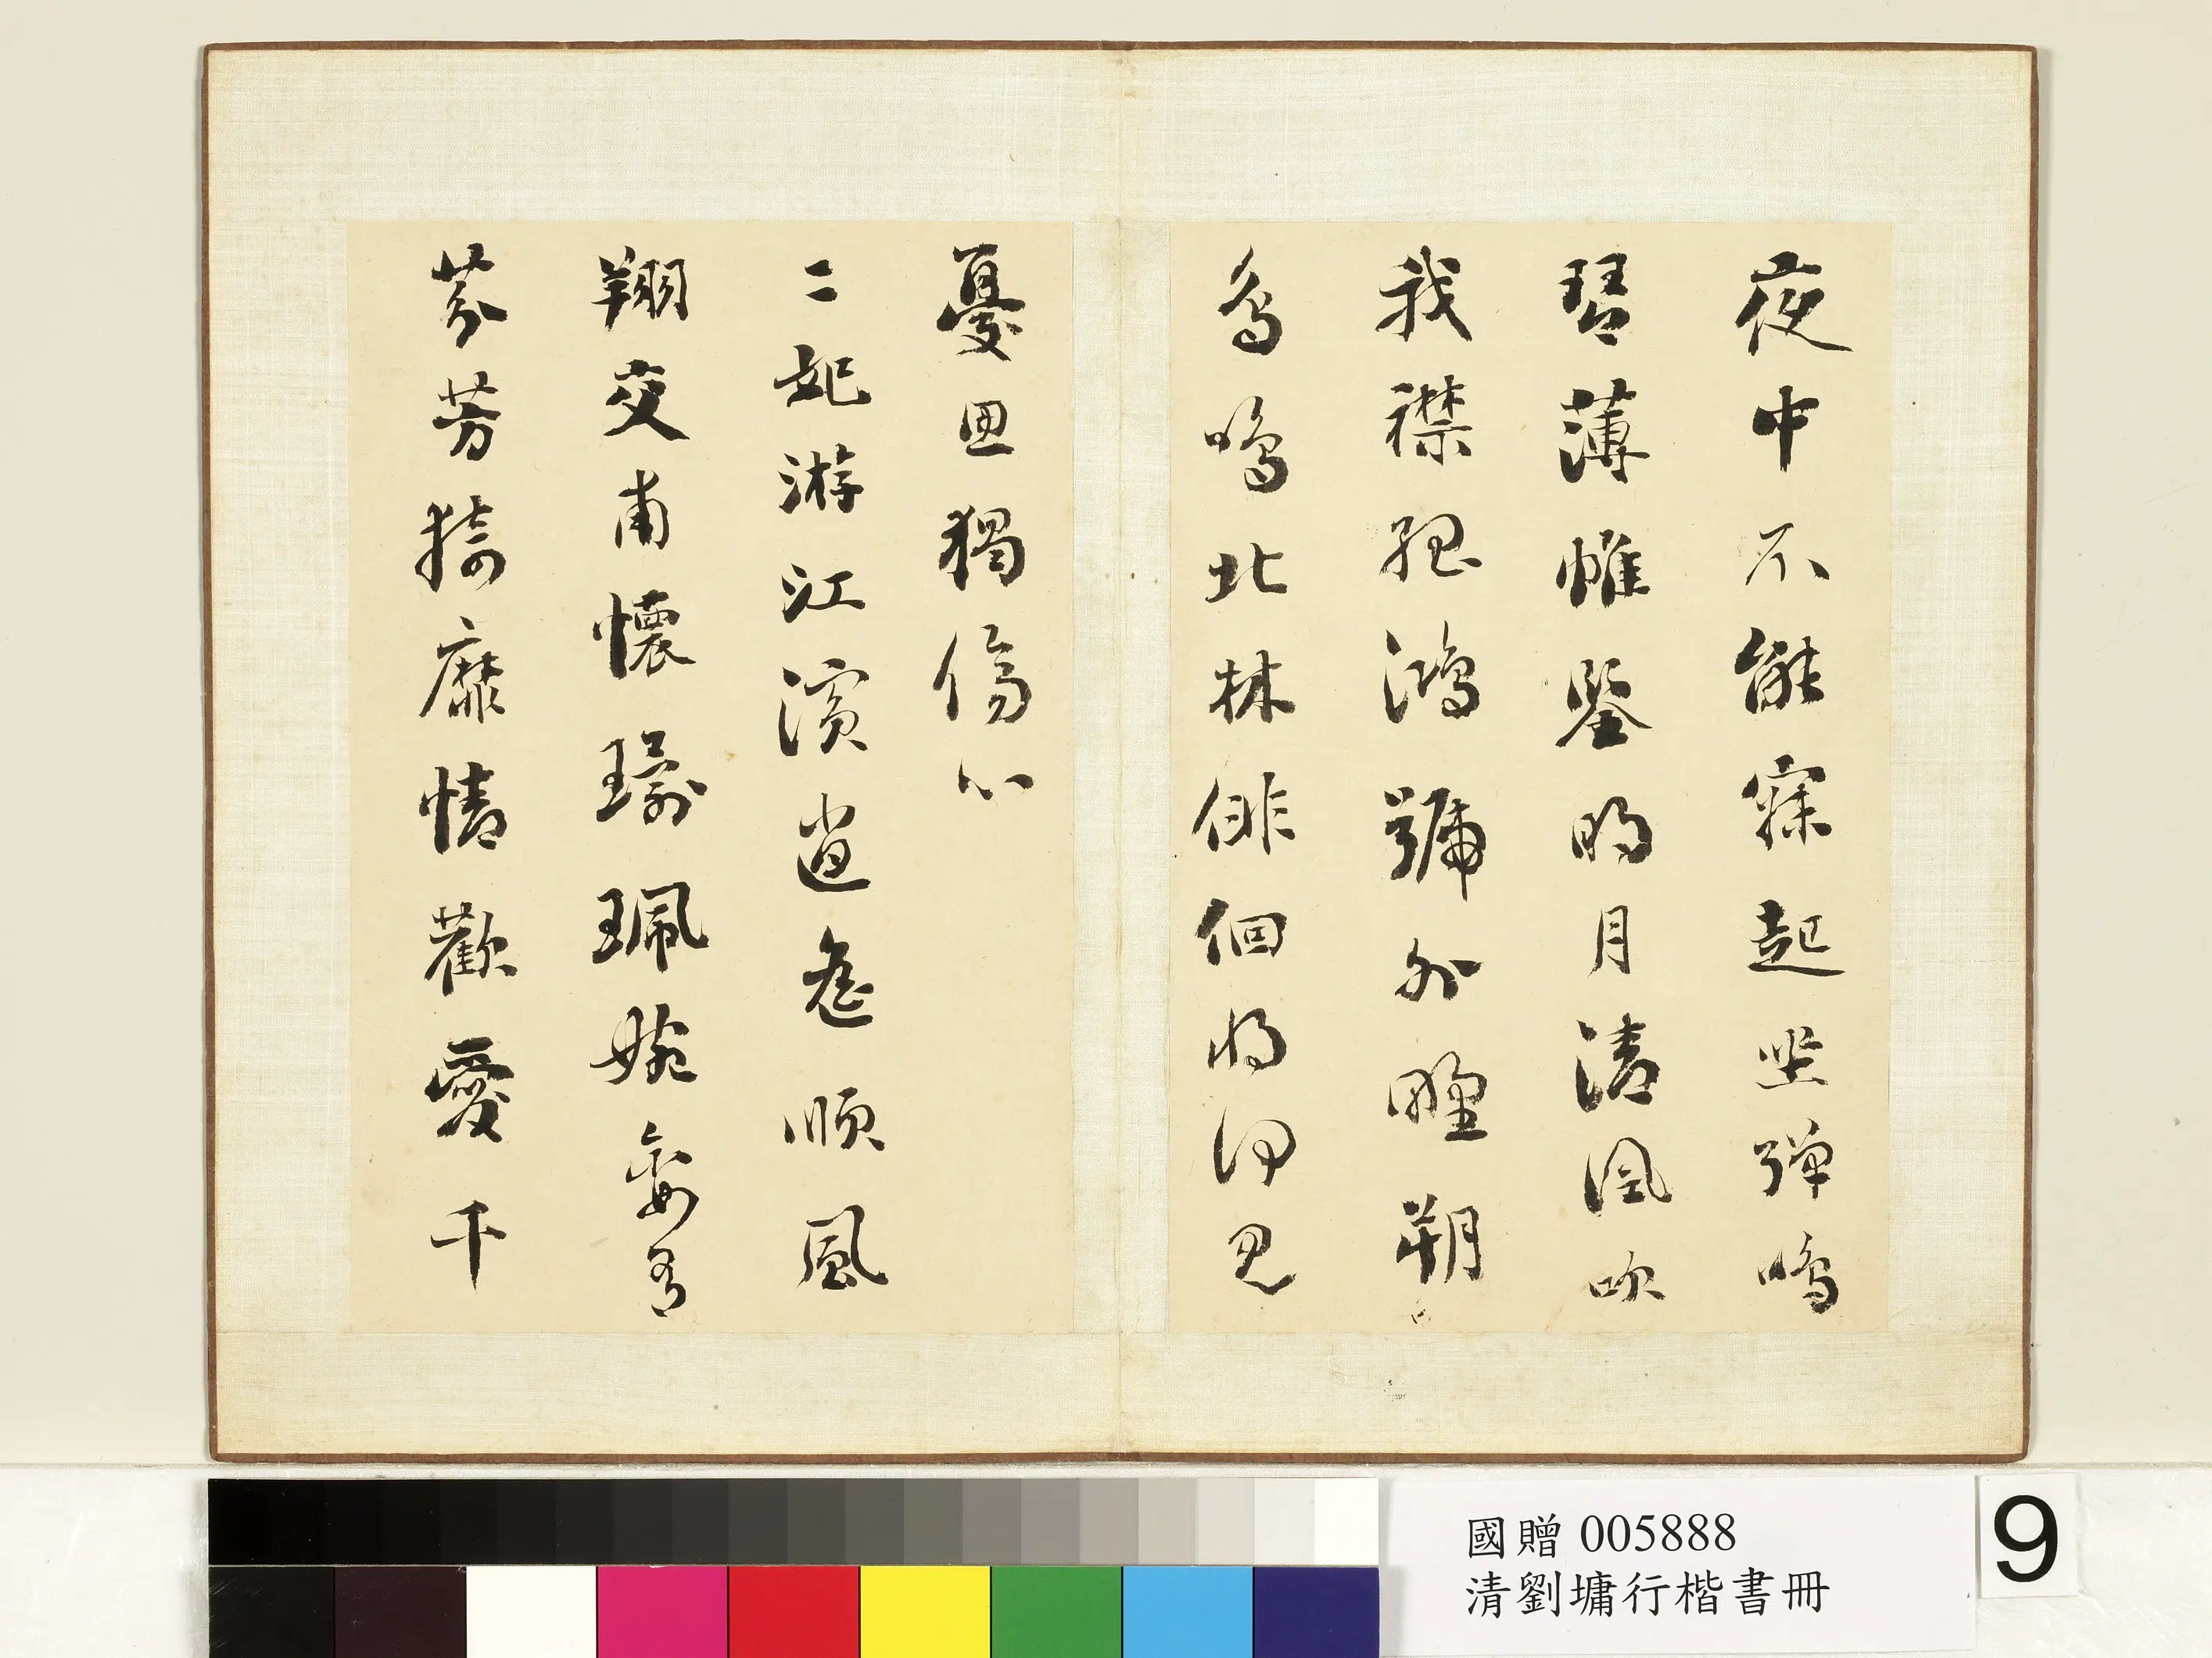 夜中不能寐起坐彈鳴
琴薄帷鑒明月清風吹
我襟孤鴻號外野朔
鳥鳴北林徘徊將何見
憂思獨傷心
二妃游江濱逍遙順風
翔交甫懷瓊珮婉孌有
芬芳猗靡情歡愛千
國贈 005888
清劉墉行楷書冊
9